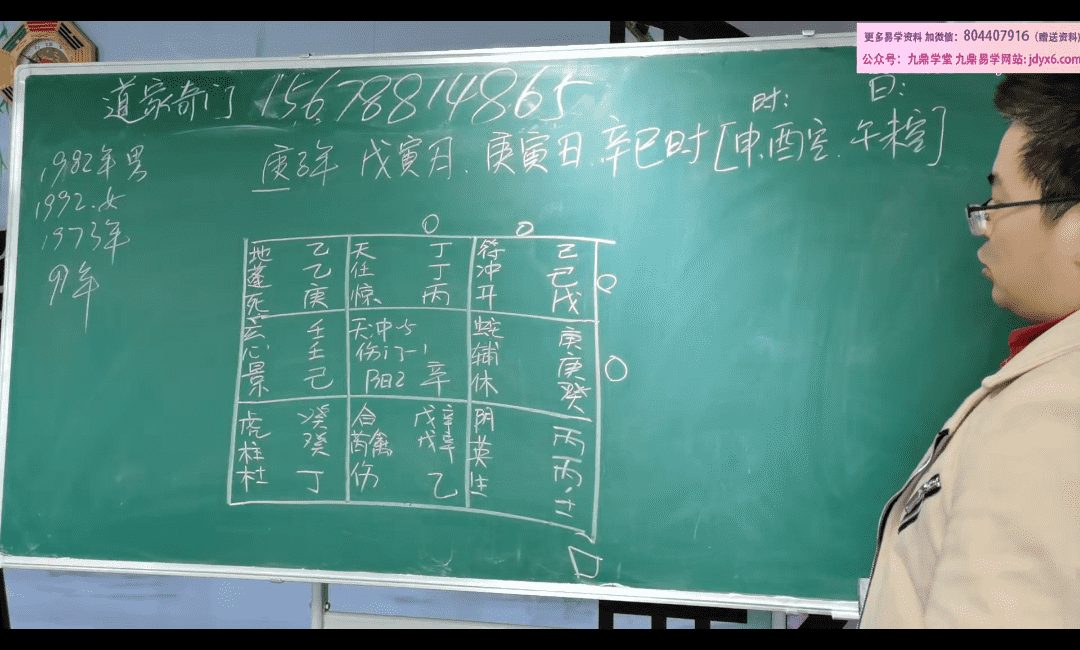 更多易学资料 加微信：804407916（赠送资料）
公众号：九鼎学堂 九鼎易学网站: jdyx6.com
道家奇门 15678814865
时: 日:
庚子年 戊寅月、庚寅日、辛巳时 [申酉空、午未空]
1982年男
1992.女
1973年
91年
地 乙 天 丁 符 己
蓬 乙 任 丁 冲 己
死 庚 惊 丙 开 戊
玄 壬 天冲-5 蛇 庚
心 壬 伤门-1 辅 庚
景 己 阳2 辛 休 癸
虎 癸 合 戊辛 阴 丙
柱 癸 芮禽 戊辛 英 丙
杜 丁 伤 乙 生 壬